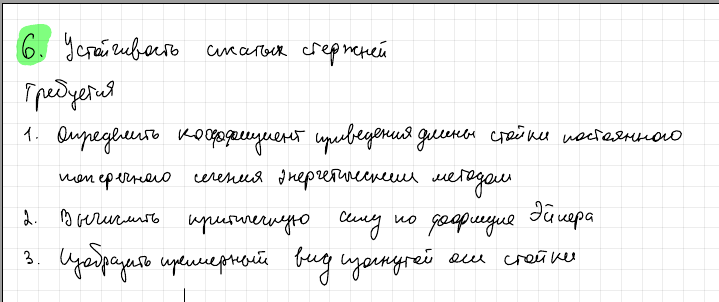 6. Устойчивость сжатых стержней
Требуется
1. Определить коэффициент приведения длины стойки постоянного
поперечного сечения энергетическим методом
2. Вычислить критическую силу по формуле Эйлера
3. Изобразить примерный вид изогнутой оси стойки